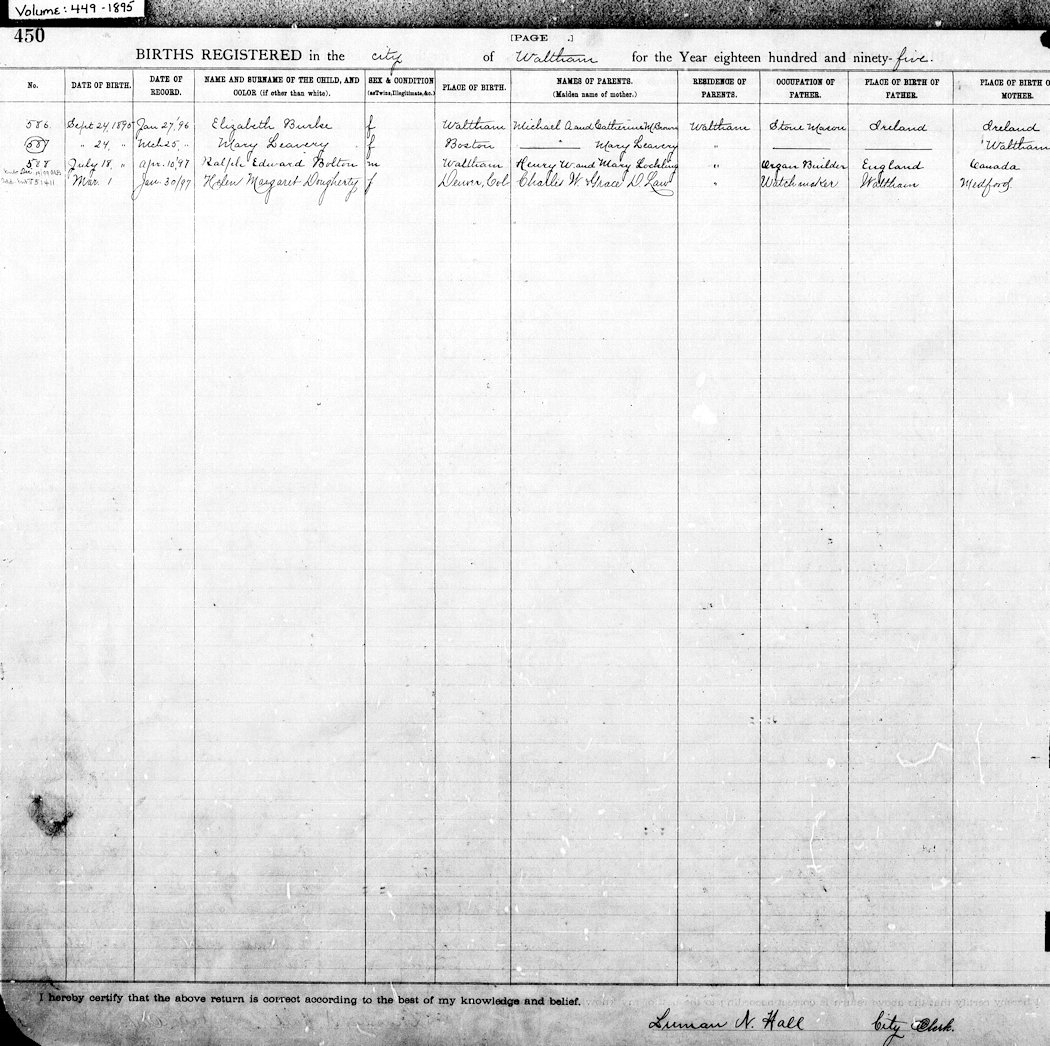 Volume: 449-1895
450
[PAGE .]
BIRTHS REGISTERED in the city of Waltham for the Year eighteen hundred and ninety-five.
No. DATE OF BIRTH. DATE OF RECORD. NAME AND SURNAME OF THE CHILD, AND COLOR (if other than white). SEX & CONDITION (as Twins, Illegitimate, &c.) PLACE OF BIRTH. NAMES OF PARENTS. (Maiden name of mother.) RESIDENCE OF PARENTS. OCCUPATION OF FATHER. PLACE OF BIRTH OF FATHER. PLACE OF BIRTH O MOTHER.
586. Sept 24, 1895 Jan 27, '96 Elizabeth Burke f Waltham Michael A and Catherine Waltham Stone Mason Ireland Ireland
587 " 24, " Mch 25, " Mary Leavery f Boston " Mary Leavery " Waltham
588 July 18, " Apr. 10, '97 Ralph Edward Bolton m Waltham Henry W. and Mary " Organ Builder England Canada
Mar. 1 Jan. 30/97 Helen Margaret Dougherty f Denver, Col Charles W. & Grace D. Law " Watchmaker Waltham Medford
I hereby certify that the above return is correct according to the best of my knowledge and belief.
Luman N. Hall City Clerk.